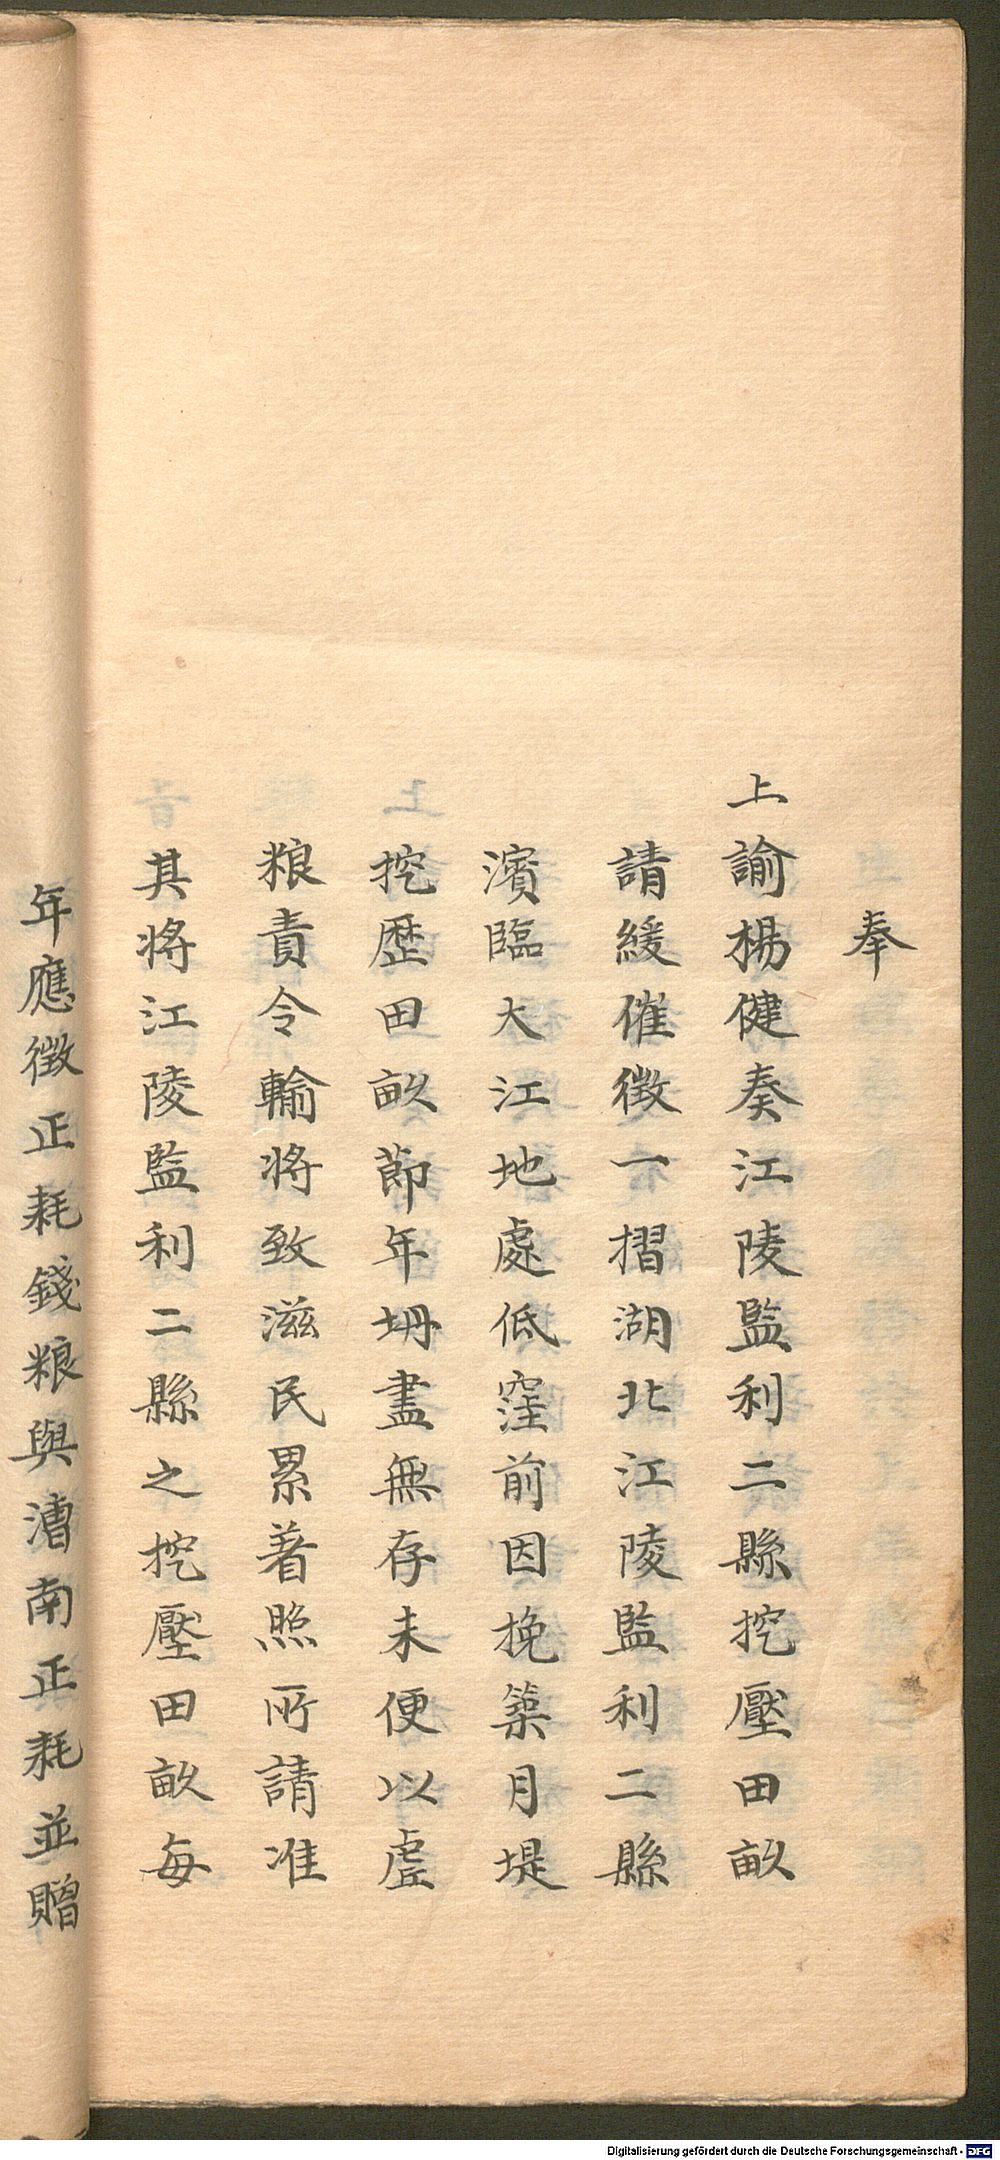 奉
上諭楊健奏江陵監利二縣挖壓田畝
請緩催徵一摺湖北江陵監利二縣
濱臨大江地處低窪前因挽築月堤
挖歷田畝節年坍盡無存未便以虛
粮責令輸將致滋民累著照所請准
其將江陵監利二縣之挖壓田畝每
年應徵正耗錢粮與漕南正耗並贈
Digitalisierung gefördert durch die Deutsche Forschungsgemeinschaft - DFG